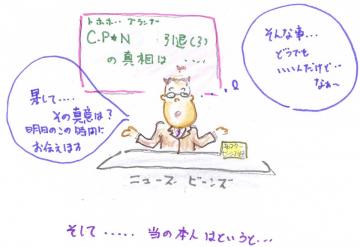 トホホ・・ プランナー
C.P★N 引退(3)
の 真相は ・・・・・
そんな事・・・
どうでも
いいんだけど・・
なぁ〜
果して・・・・
その真意は?
明日のこの時間に
お伝えします
ニュース ビーンズ
そして ・・・・・ 当の本人はというと・・・